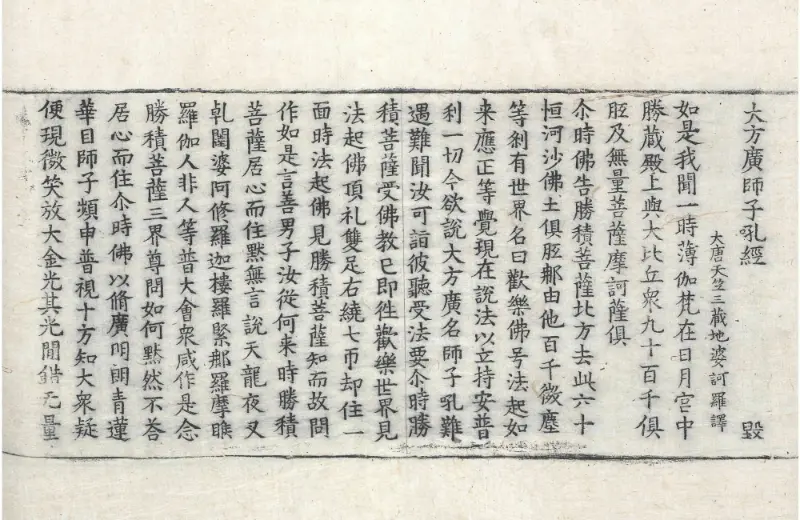 大方廣師子吼經 毀
大唐天竺三藏地婆訶羅譯
如是我聞一時薄伽梵在日月宮中
勝蔵殿上與大比丘衆九十百千俱
胝及無量菩薩摩訶薩俱
尒時佛告勝積菩薩北方去此六十
恒河沙佛土俱胝那由他百千微塵
等刹有世界名曰歡樂佛号法起如
来應正等覺現在說法以立持安普
利一切今欲說大方廣名師子吼難
遇難聞汝可詣彼聽受法要尒時勝
積菩薩受佛教已即徃歡樂世界見
法起佛頂礼雙足右繞七帀却住一
面時法起佛見勝積菩薩知而故問
作如是言善男子汝從何来時勝積
菩薩居心而住默無言說天龍夜叉
乹闥婆阿修羅迦樓羅緊那羅摩睺
羅伽人非人等普大會衆咸作是念
勝積菩薩三界尊問如何默然不荅
居心而住尒時佛以脩廣明朗青蓮
華目師子頻申普視十方知大衆疑
便現微笑放大金光其光間錯无量